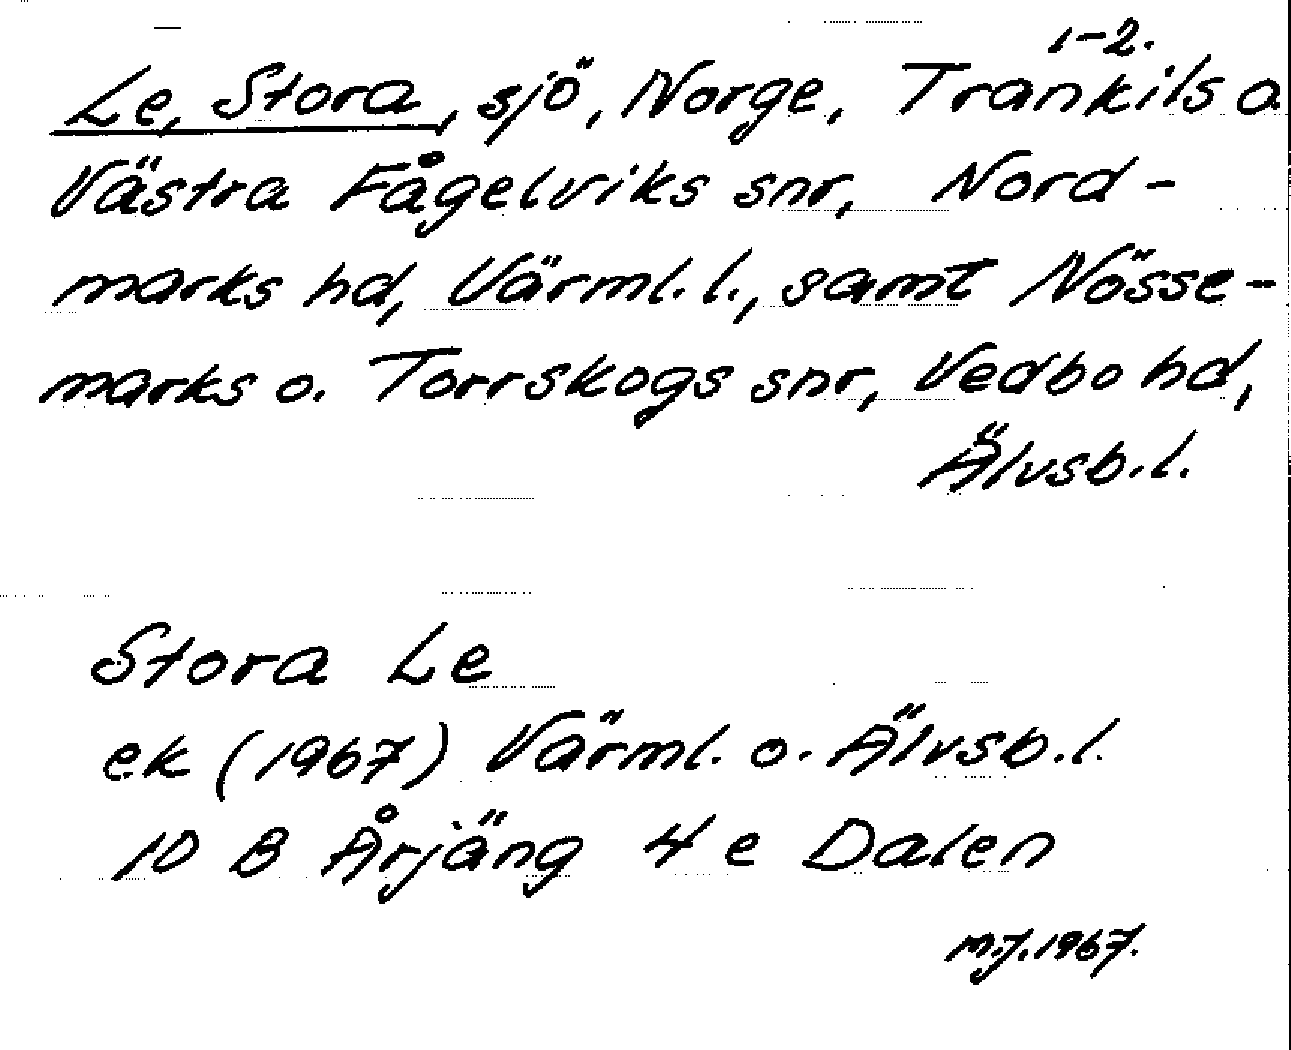 1-2.
Le, Stora, sjö, Norge, Trankils o.
Västra Fågelviks snr, Nord-
marks hd, Värml. l., samt Nösse-
marks o. Torrskogs snr, Vedbo hd,
Älvsb. l.
Stora Le
ek (1967) Värml. o. Älvsb. l.
10 B Årjäng 4 e Dalen
M.J. 1967.